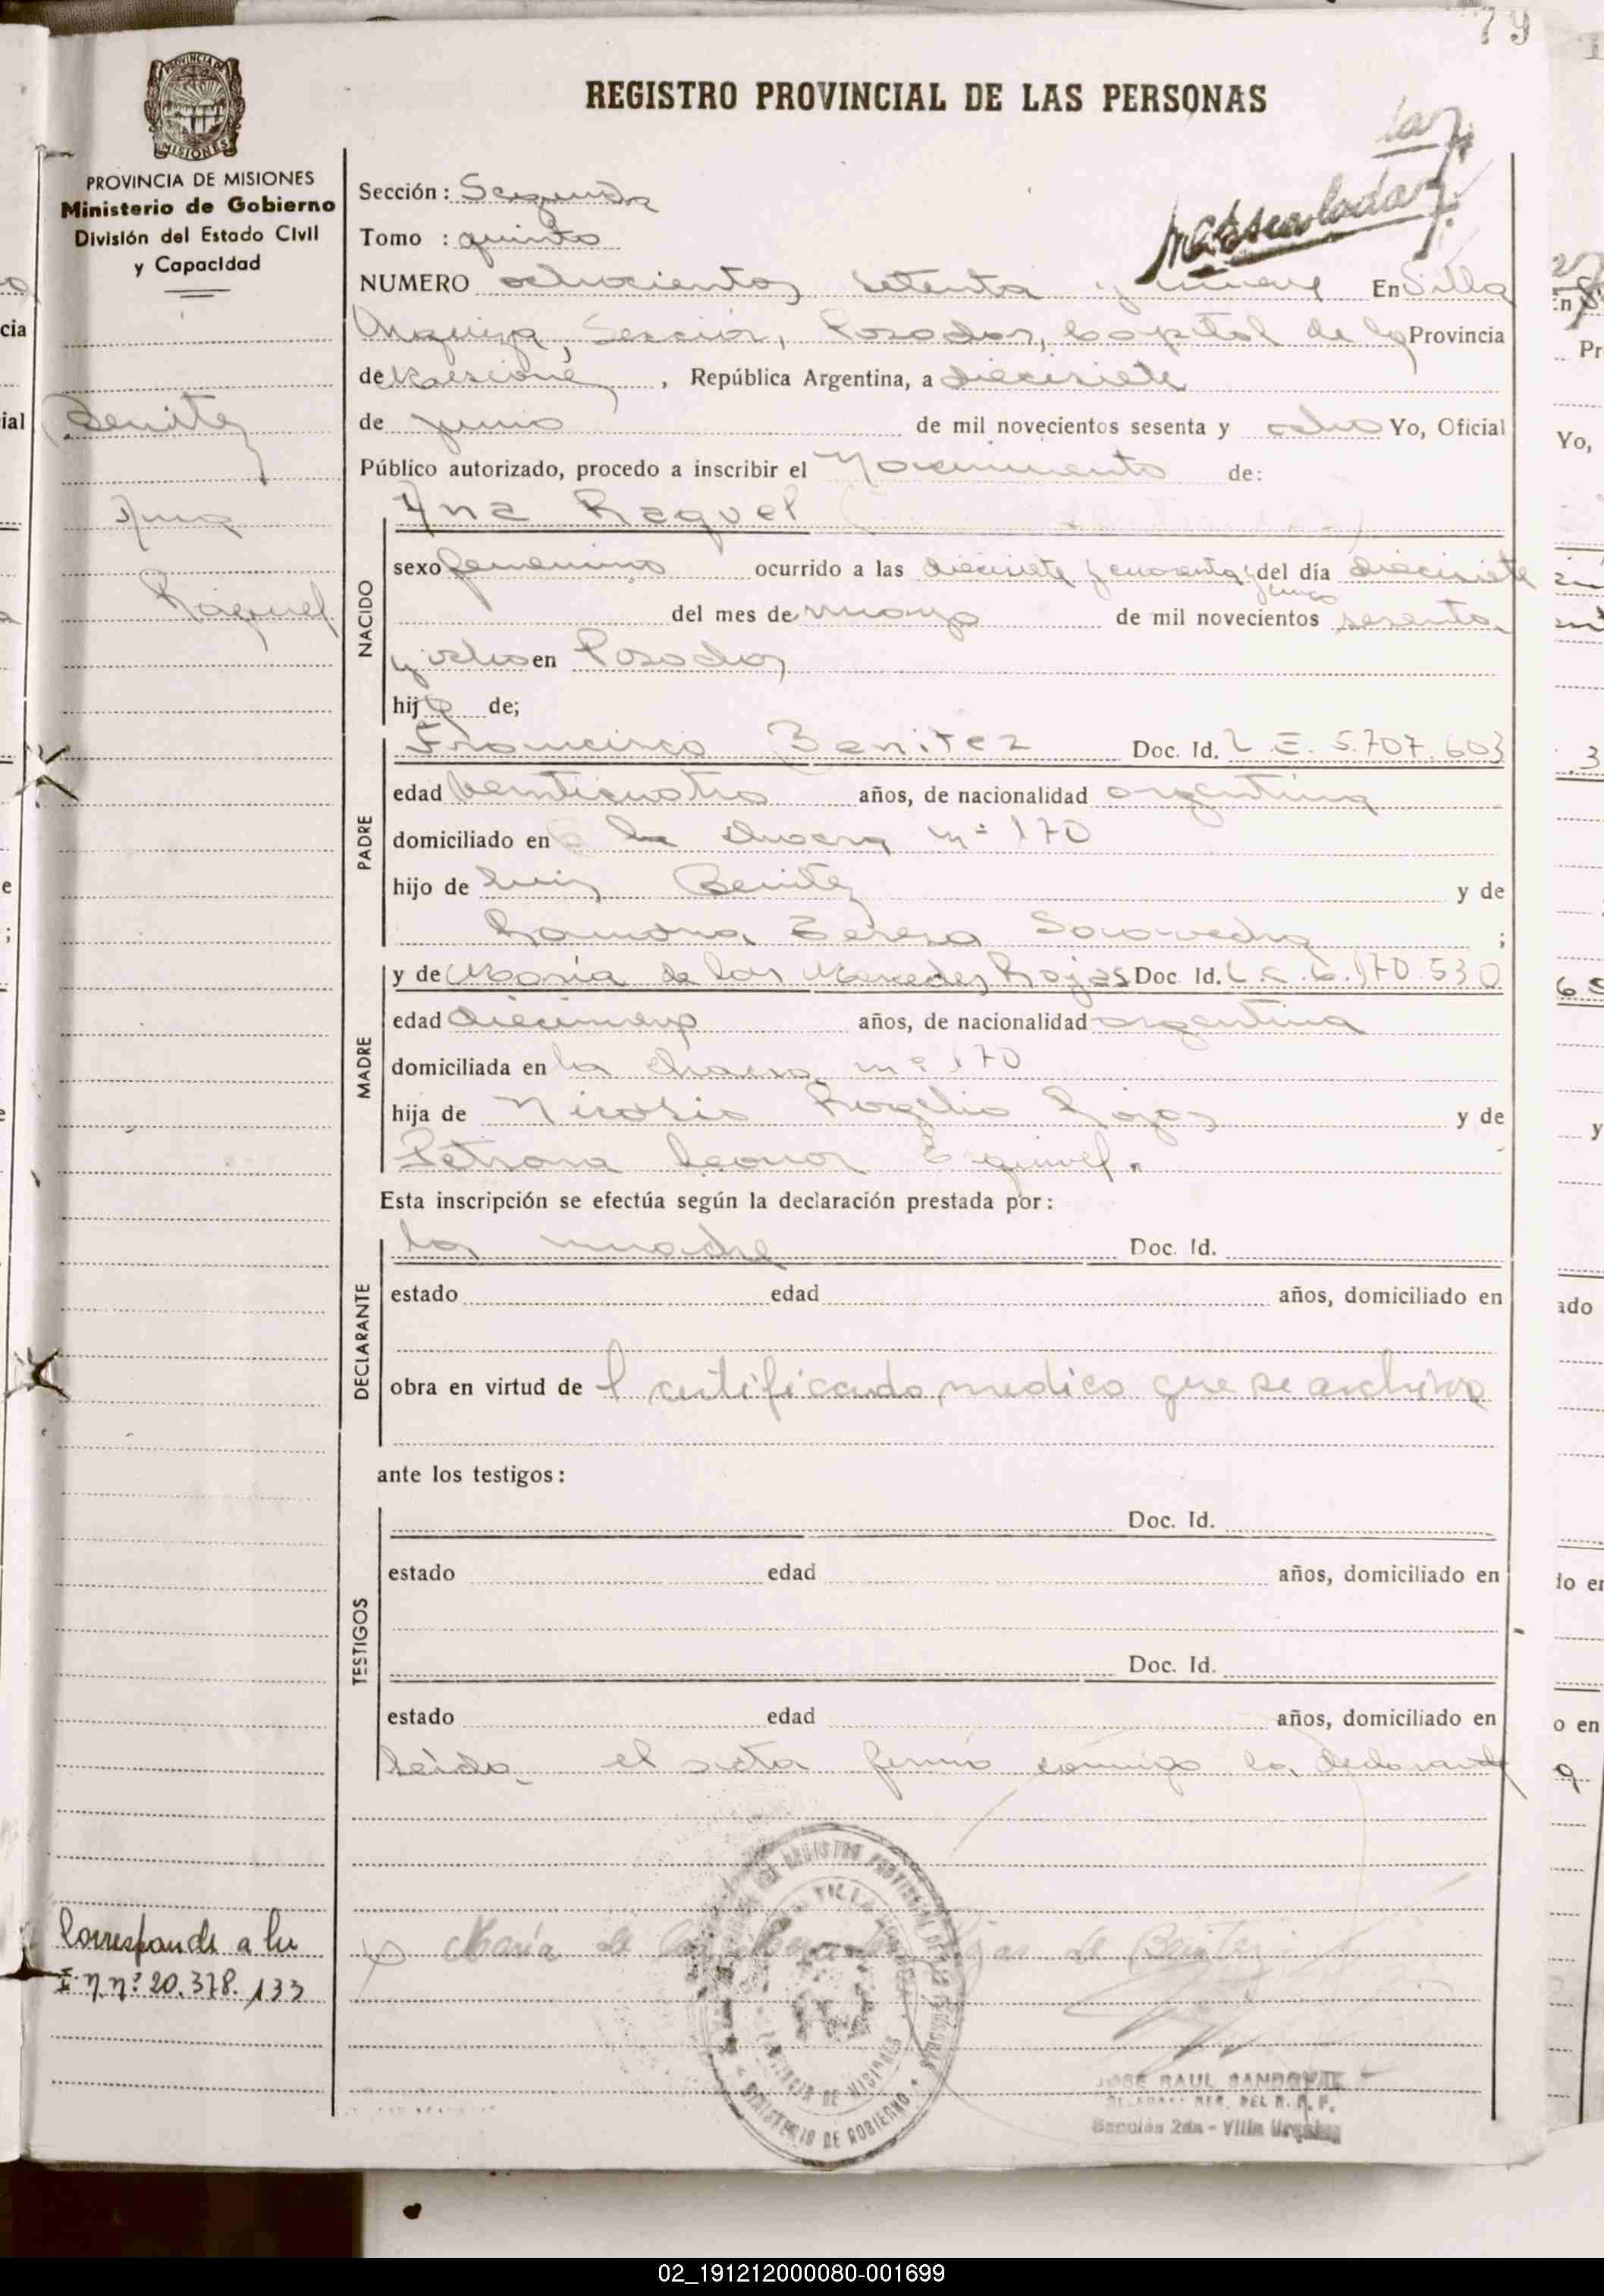 79
REGISTRO PROVINCIAL DE LAS PERSONAS
PROVINCIA DE MISIONES
Ministerio de Gobierno
División del Estado Civil
y Capacidad
Sección: Segunda
Tomo: quinto
NUMERO ochocientos setenta y nueve En Villa
Urquiza, Sección, Posadas, Capital de la Provincia
de Misiones, República Argentina, a diecisiete
de junio de mil novecientos sesenta y ocho Yo, Oficial
Público autorizado, procedo a inscribir el Nacimiento de:
Benitez
Ana
Raquel
NACIDO
Ana Raquel
sexo femenino ocurrido a las diecisiete y cuarenta y cinco del día diecisiete
del mes de mayo de mil novecientos sesenta
y ocho en Posadas
hija de;
PADRE
Francisco Benitez Doc. Id. L.E. 5.707.603
edad veinticuatro años, de nacionalidad argentina
domiciliado en la chacra nº 170
hijo de Luis Benitez y de
Ramona Teresa Saavedra;
MADRE
y de María de las Mercedes Rojas Doc. Id. L.C. 6.170.530
edad diecinueve años, de nacionalidad argentina
domiciliada en la chacra nº 170
hija de Rogelio Rojas y de
Petrona Leonor Esquivel.
Esta inscripción se efectúa según la declaración prestada por:
DECLARANTE
la madre Doc. Id.
estado edad años, domiciliado en
obra en virtud de l certificado medico que se archiva
ante los testigos:
TESTIGOS
Doc. Id.
estado edad años, domiciliado en
Doc. Id.
estado edad años, domiciliado en
Leída el acta firmó conmigo la declarante
Corresponde a la
M.I. nº: 20.378.133
María de las Mercedes Rojas de Benitez
REGISTRO PROVINCIAL DE LAS PERSONAS
MINISTERIO DE GOBIERNO
PROVINCIA DE MISIONES
JOSE RAUL SANDOVAL
DEL R. P. P.
Sección 2da - Villa Urquiza
02_191212000080-001699